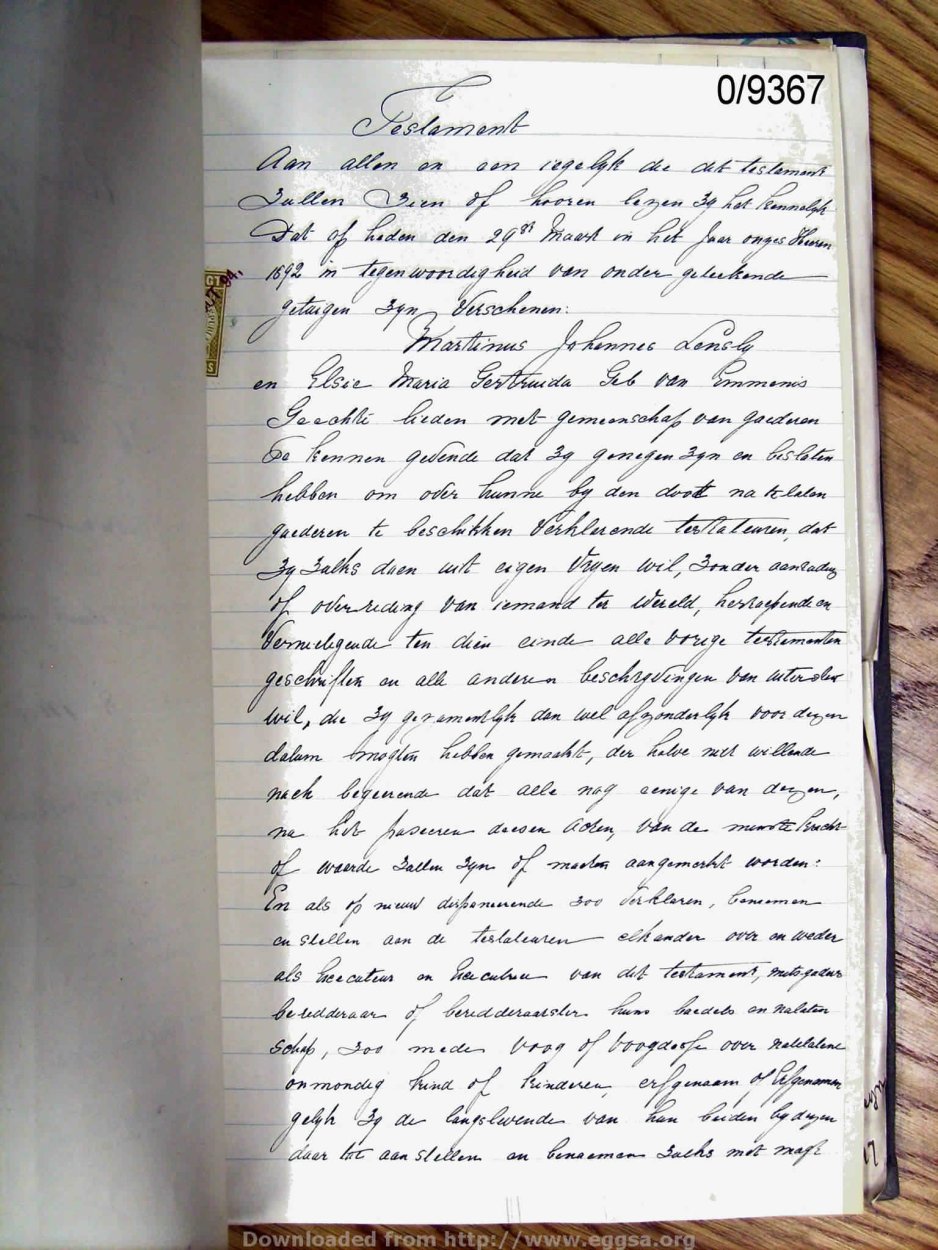 0/9367
Testament
Aan allen en een iegelyk die dit testament
Zullen Zien of hooren lezen Zy het kennelyk
Dat op heden den 29st Maart in het Jaar onzes Heeren
1892 in tegenwoordigheid van onder geteekende
getuigen Zyn Verschenen:
Martinus Johannes Lensly
en Elsie Maria Gertruida Geb van Emmenis
Geechte lieden met gemeenschap van goederen
Te kennen gevende dat Zy genegen Zyn en besloten
hebben om over hunne by den dood na te laten
goederen te beschikken Verklarende testateuren, dat
Zy Zulks doen uit eigen Vryen wil, Zonder aanrading
of overreding van iemand ter Wereld, herroepende en
Vernietigende ten dien einde alle vorige testamenten
geschriften en alle anderen beschryvingen van uitersten
wil, die Zy gezamentlyk dan wel afzonderlyk voor dezen
datum mogten hebben gemaakt, der halve niet willende
noch begeerende dat alle nog eenige van dezen,
na het passeren deesen Acten, van de minste kracht
of waarde Zullen Zyn of moeten aangemerkt worden:
En als op nieuw disponeerende zoo Verklaren, benoemen
en stellen aan de testateuren elkander over en weder
als Executeur en Executrice van dit testament, mitsgaders
beredderaar of beredderaarster huns boedels en nalaten
schap, zoo mede voog of voogdesse over natelatene
onmondig kind of kinderen, erfgenaam of Erfgenamen
gelyk Zy de langslevende van hun beiden by dezen
daar toe aanstellen en benoemen Zulks met magt
Downloaded from http://www.eggsa.org